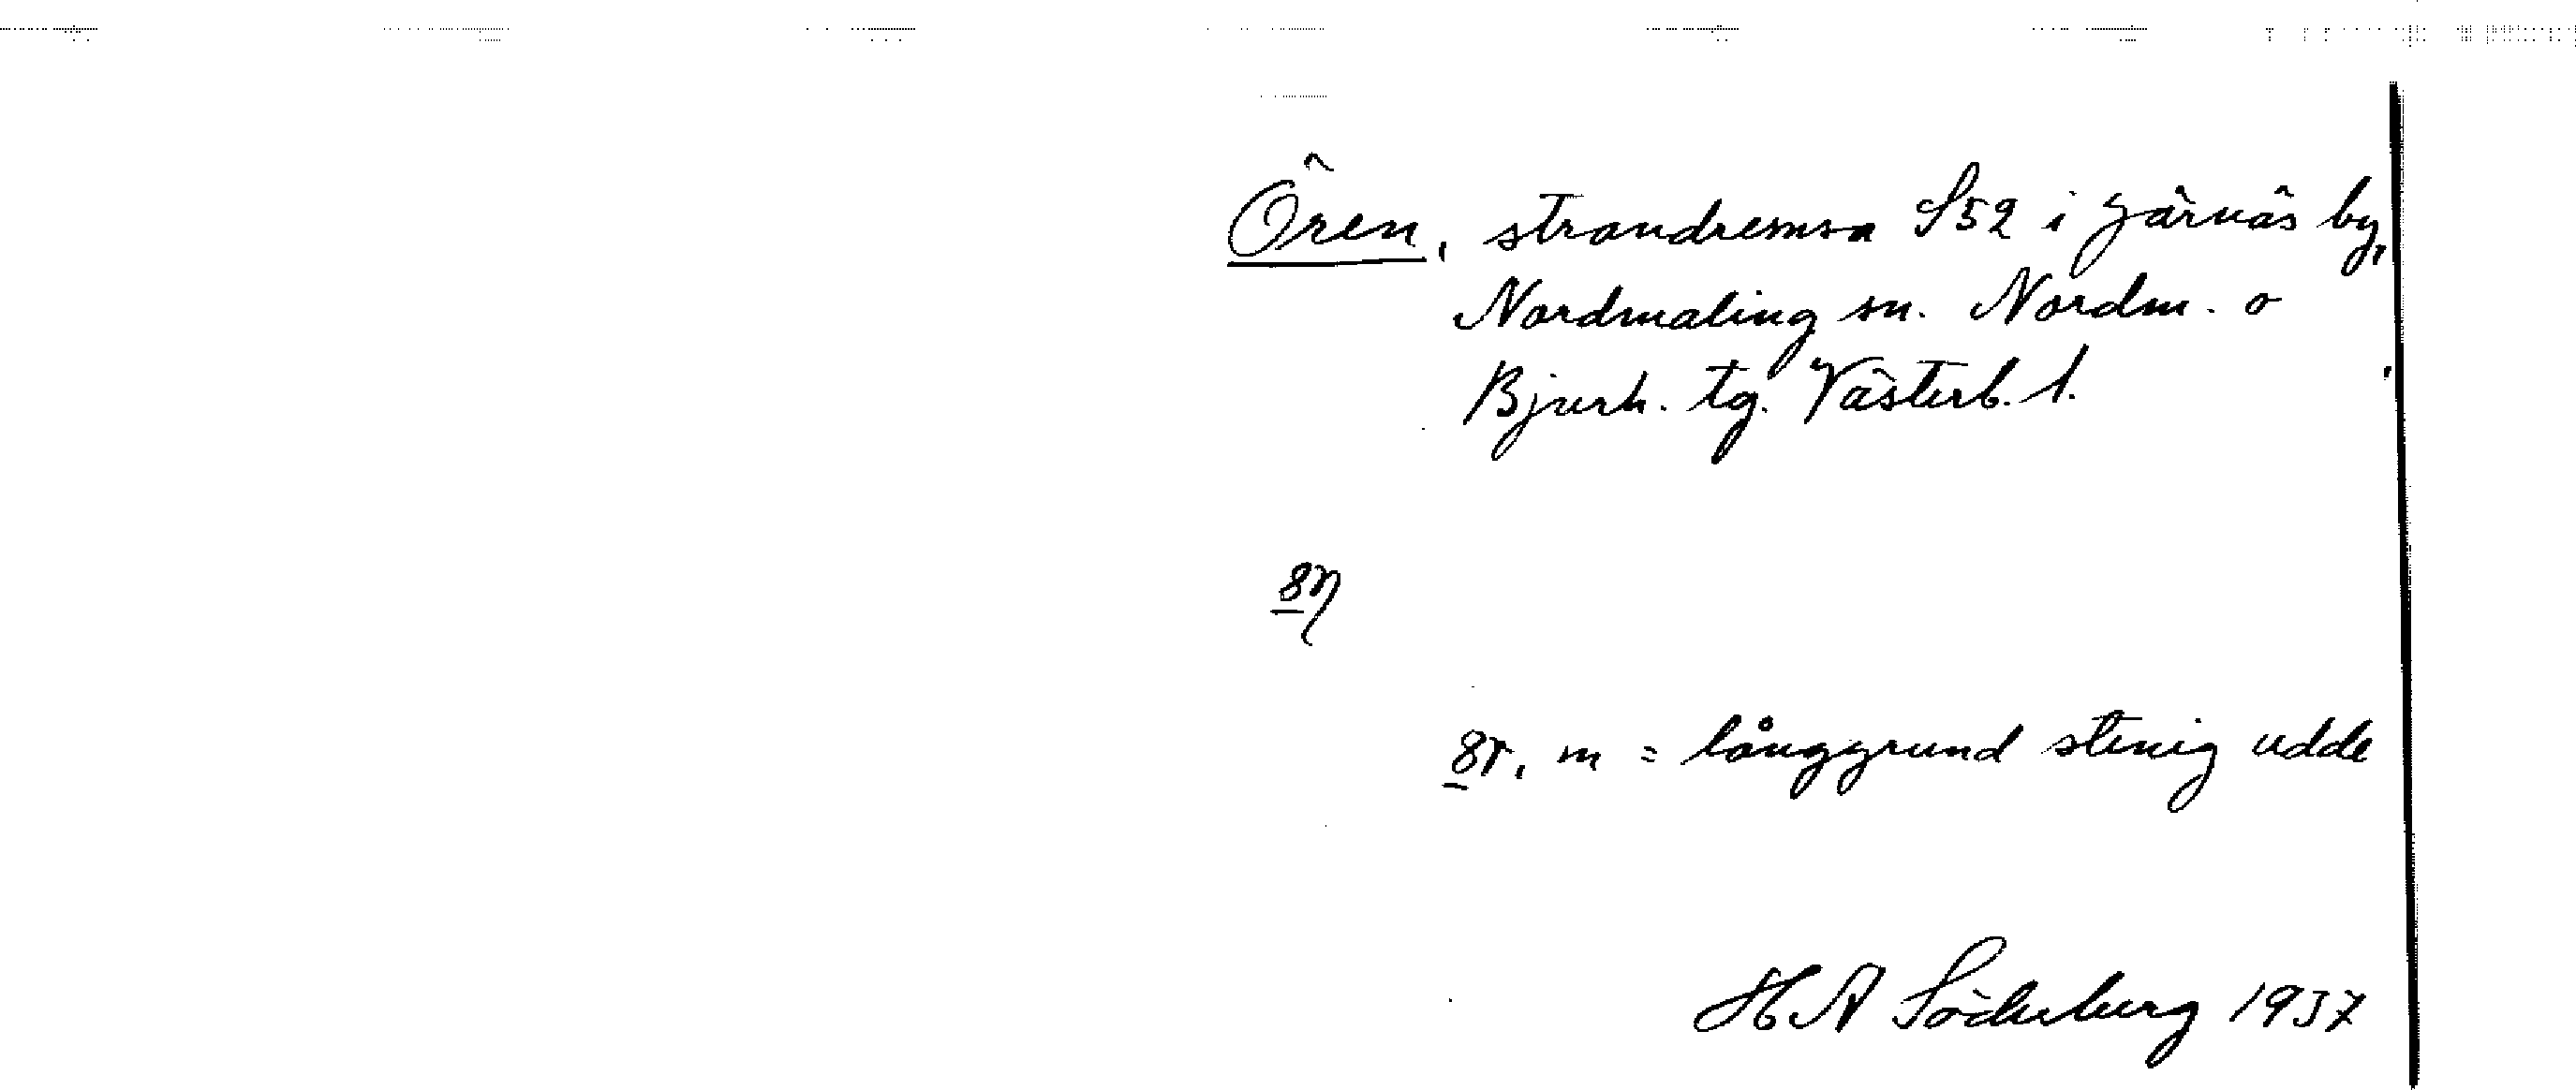 Ören, strandremsa S52 i Järnäs by,
Nordmaling sn. Nordm. o
Bjurh. tg. Västerb. l.
8r, m = långgrund stenig udde
H A Söderberg 1937